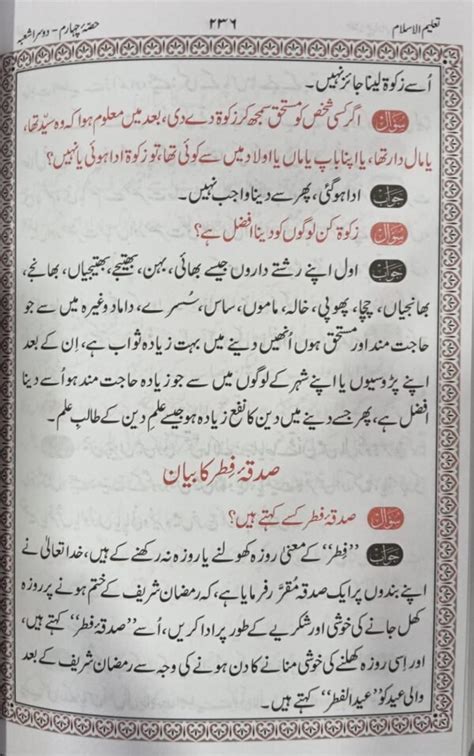 تعلیم الاسلام ۲۳۶ حصّۂ چہارم - دوسرا شعبہ
اُسے زکوٰۃ لینا جائز نہیں۔
سوال اگر کسی شخص کو مستحق سمجھ کر زکوٰۃ دے دی، بعد میں معلوم ہوا کہ وہ سیّد تھا،
یا مال دار تھا، یا اپنا باپ یا ماں یا اولاد میں سے کوئی تھا، تو زکوٰۃ ادا ہوئی یا نہیں؟
جواب ادا ہوگئی، پھر سے دینا واجب نہیں۔
سوال زکوٰۃ کن لوگوں کو دینا افضل ہے؟
جواب اول اپنے رشتے داروں جیسے بھائی، بہن، بھتیجے، بھتیجیاں، بھانجے،
بھانجیاں، چچا، پھوپی، خالہ، ماموں، ساس، سُسرے، داماد وغیرہ میں سے جو
حاجت مند اور مستحق ہوں اُنھیں دینے میں بہت زیادہ ثواب ہے، اِن کے بعد
اپنے پڑوسیوں یا اپنے شہر کے لوگوں میں سے جو زیادہ حاجت مند ہو اُسے دینا
افضل ہے، پھر جسے دینے میں دین کا نفع زیادہ ہو جیسے علمِ دین کے طالبِ علم۔
صدقۂ فطر کا بیان
سوال صدقۂ فطر کسے کہتے ہیں؟
جواب ”فطر“ کے معنی روزہ کھولنے یا روزہ نہ رکھنے کے ہیں، خدا تعالیٰ نے
اپنے بندوں پر ایک صدقہ مقرّر فرمایا ہے، کہ رمضان شریف کے ختم ہونے پر روزہ
کھل جانے کی خوشی اور شکریے کے طور پر ادا کریں، اُسے ”صدقۂ فطر“ کہتے ہیں،
اور اِسی روزہ کھلنے کی خوشی منانے کا دن ہونے کی وجہ سے رمضان شریف کے بعد
والی عید کو ”عید الفطر“ کہتے ہیں۔